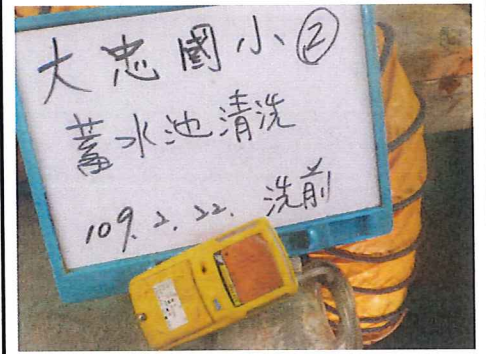 大忠國小②
蓄水池清洗
109.2.22. 洗前